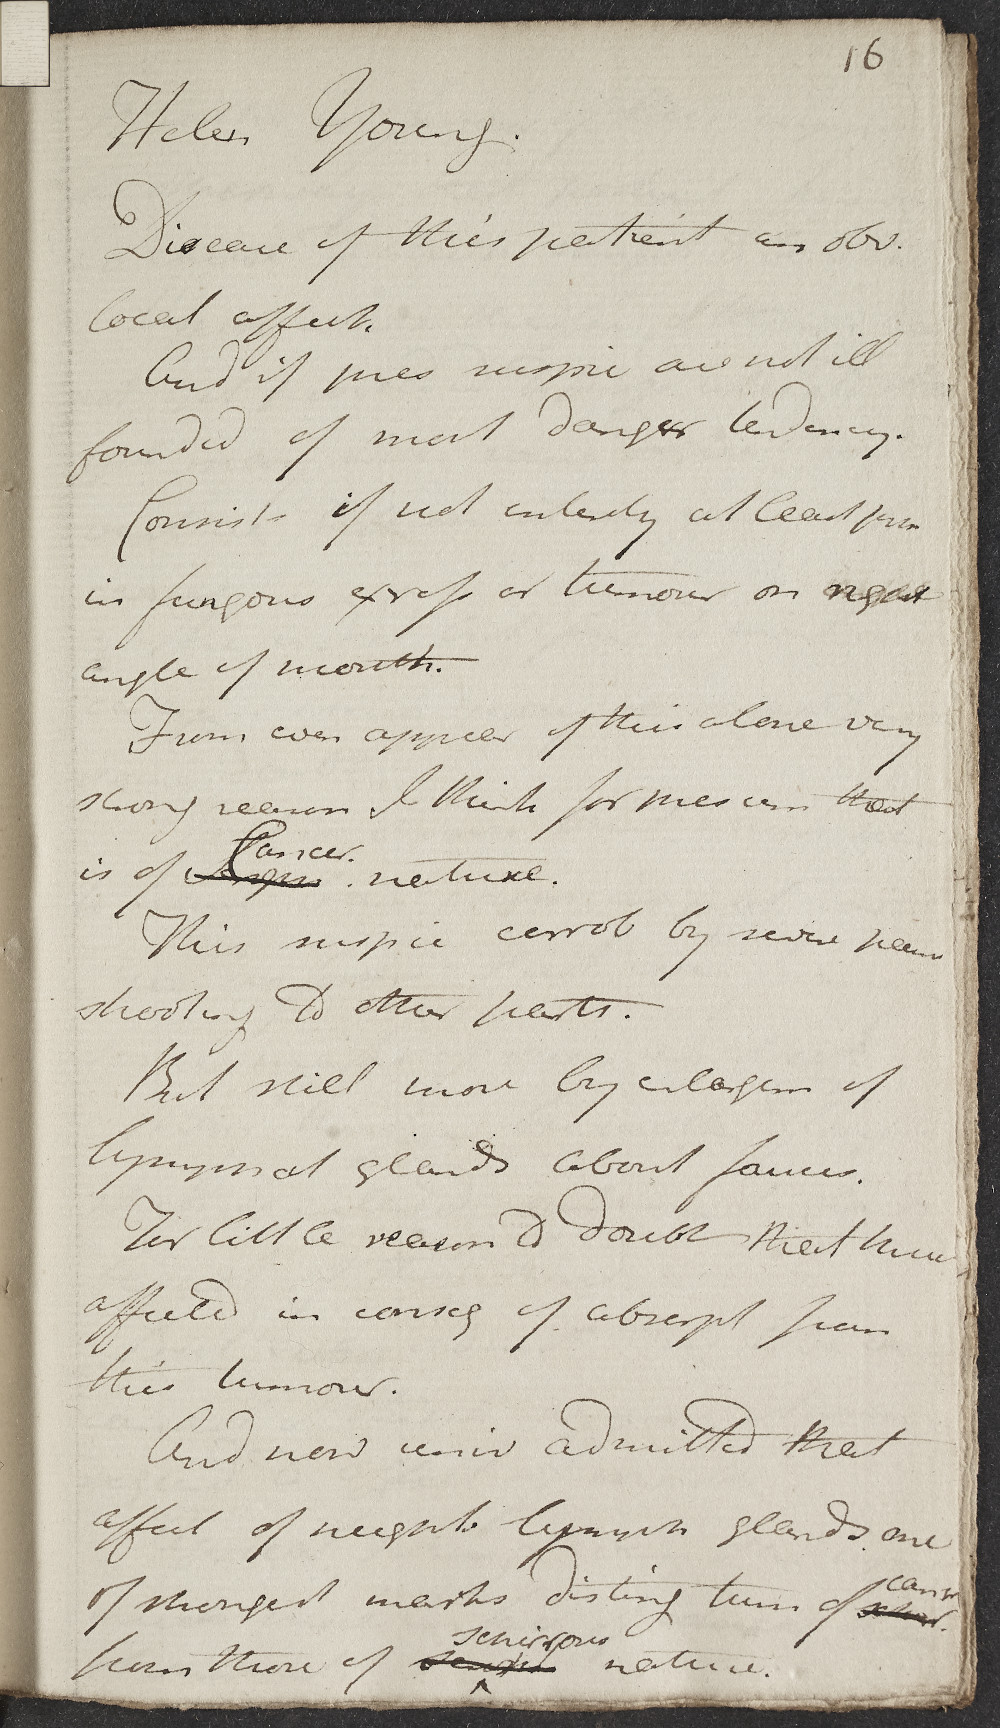 16
Helen Young.
Disease of this patient an obv.
local affect.
And if pres suspic are not ill
founded of most danger tendency.
Consists if not entirely at least prin
in fungous excresc or tumour on right
angle of mouth.
From even appear of this alone very
strong reason I think for presum that
is of Cancer. nature.
This suspic corrob by severe pain
shooting to other parts.
But still more by enlargem of
lymphat glands about fauces.
For little reason to doubt that these
affected in conseq of absorpt from
this tumour.
And now univ admitted that
affect of neighb lymph glands one
of strongest marks disting tum of cancer
from those of schirrous nature.